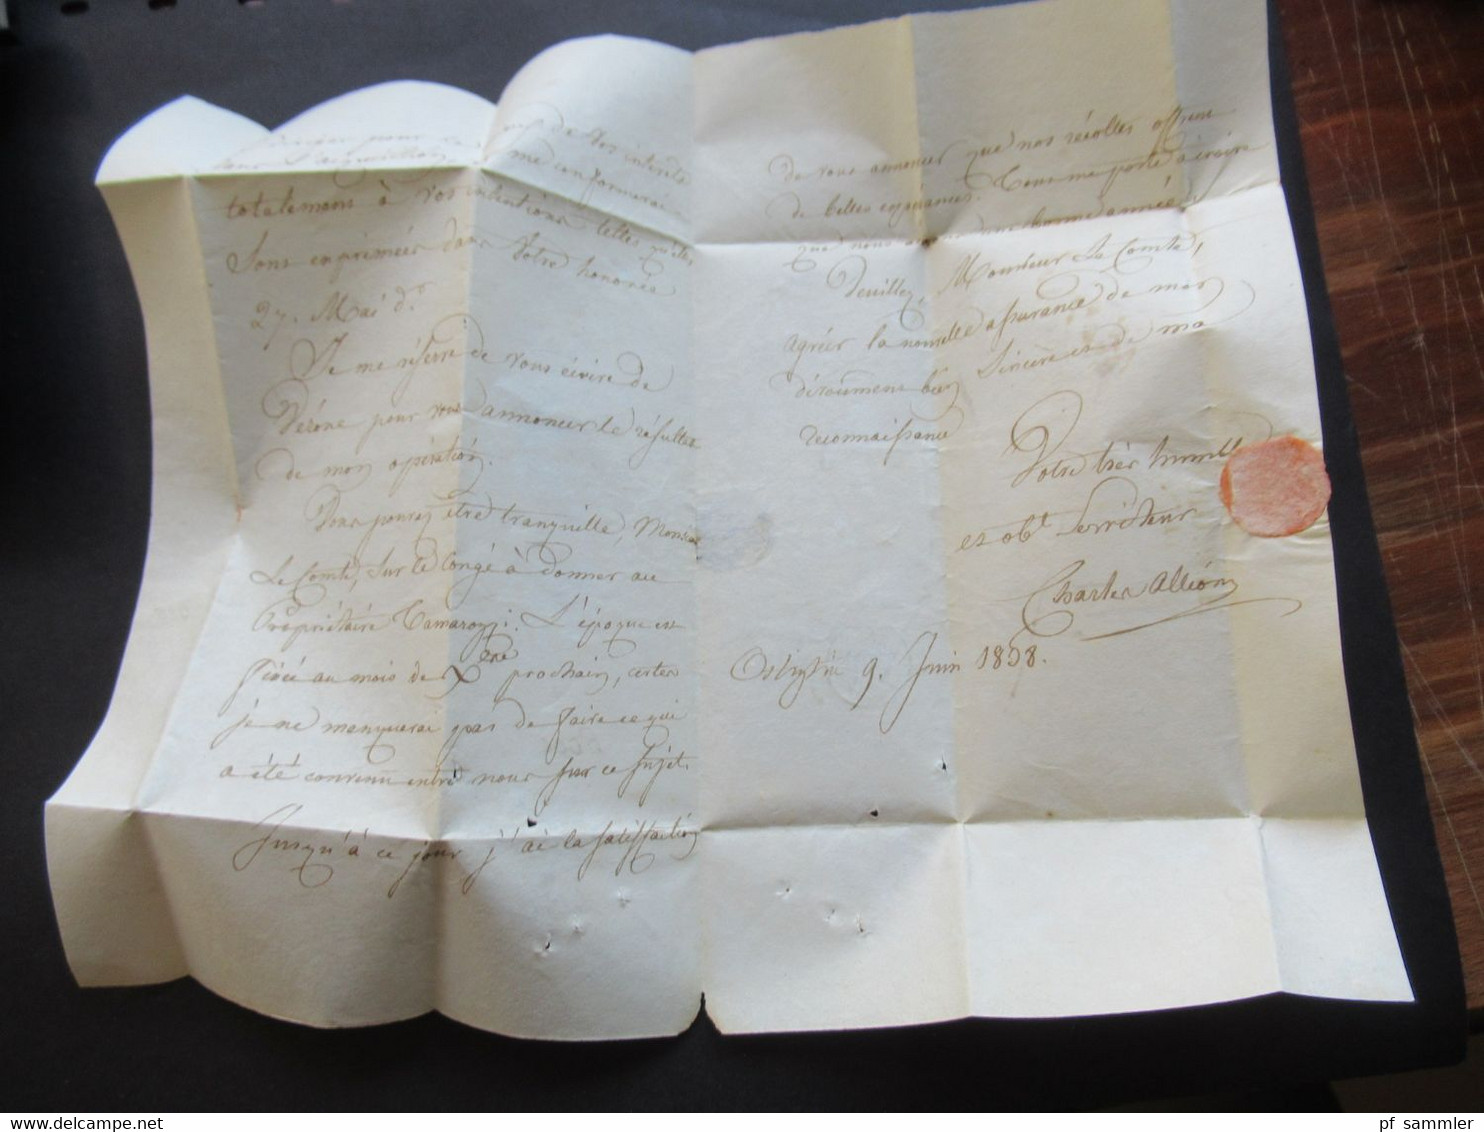 pour
vos intérêts
me conformerai
totalement à vos intentions telles qu'elles
sont exprimées dans votre honorée
27. Mai d.º
Je me réserve de vous écrire de
Vérone pour vous annoncer le résultat
de mon opération.
Vous pouvez être tranquille, Monsieur
Le Comte, sur le Congé à donner au
Propriétaire Tamarozzi. L'époque est
fixée au mois de Xbre prochain, certes
je ne manquerai pas de faire ce qui
a été convenu entre nous sur ce sujet.
Jusqu'à ce jour j'ai la satisfaction
de vous annoncer que nos récoltes offrent
de belles espérances. Tout me porte à croire
que nous aurons une bonne année.
Veuillez, Monsieur Le Comte,
agréer la nouvelle assurance de mon
dévouement bien sincère et de ma
reconnaissance
Votre très humble
et obt Serviteur
Charles
9. Juin 1838.
pf sammler